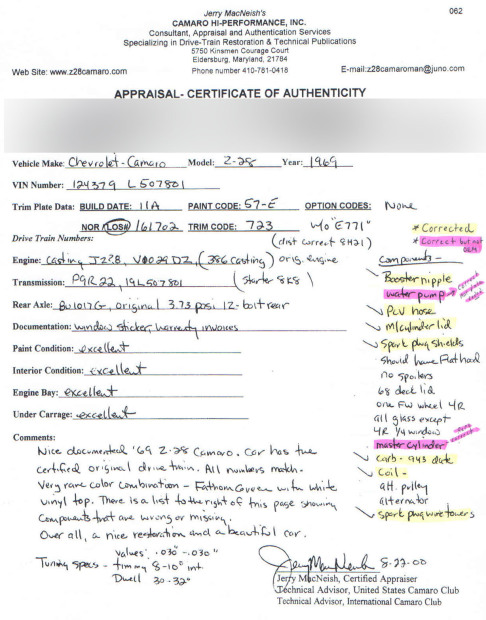 062
Jerry MacNeish's
CAMARO HI-PERFORMANCE, INC.
Consultant, Appraisal and Authentication Services
Specializing in Drive-Train Restoration & Technical Publications
5750 Kinsmen Courage Court
Eldersburg, Maryland, 21784
Web Site: www.z28camaro.com Phone number 410-781-0418 E-mail:z28camaroman@juno.com
APPRAISAL- CERTIFICATE OF AUTHENTICITY
Vehicle Make: Chevrolet-Camaro Model: Z-28 Year: 1969
VIN Number: 124379 L507801
Trim Plate Data: BUILD DATE: 11A PAINT CODE: 57-E OPTION CODES: None
NOR/LOS# 161702 TRIM CODE: 723 w/o "E771"
Drive Train Numbers: (dist correct 8H21)
Engine: Casting J228, V0029DZ, (386 casting) orig. engine
Transmission: P9R22, 19L507801 (starter 8K8)
Rear Axle: BU1017G, original 3.73 posi 12-bolt rear
Documentation: window sticker, warranty invoices
Paint Condition: excellent
Interior Condition: excellent
Engine Bay: excellent
Under Carrage: excellent
Comments:
Nice documented '69 Z-28 Camaro. Car has the
certified original drive train. All numbers match.
Very rare color combination - Fathom Green with white
vinyl top. There is a list to the right of this page showing
components that are wrong or missing.
Over all, a nice restoration and a beautiful car.
Tuning specs - values .030"-.030"
timing 8-10° int
Dwell 30-32°
* Corrected
* Correct but not
Components -
Booster nipple
water pump
PCV hose
M/cylinder lid
Spark plug shields
should have flathead
no spoilers
68 deck lid
one FW wheel YR
all glass except
YR 1/4 window
master cylinder
Carb - 943 date
Coil -
A.H. pulley
alternator
Spark plug wire towers
Jerry MacNeish 8-22-00
Jerry MacNeish, Certified Appraiser
Technical Advisor, United States Camaro Club
Technical Advisor, International Camaro Club